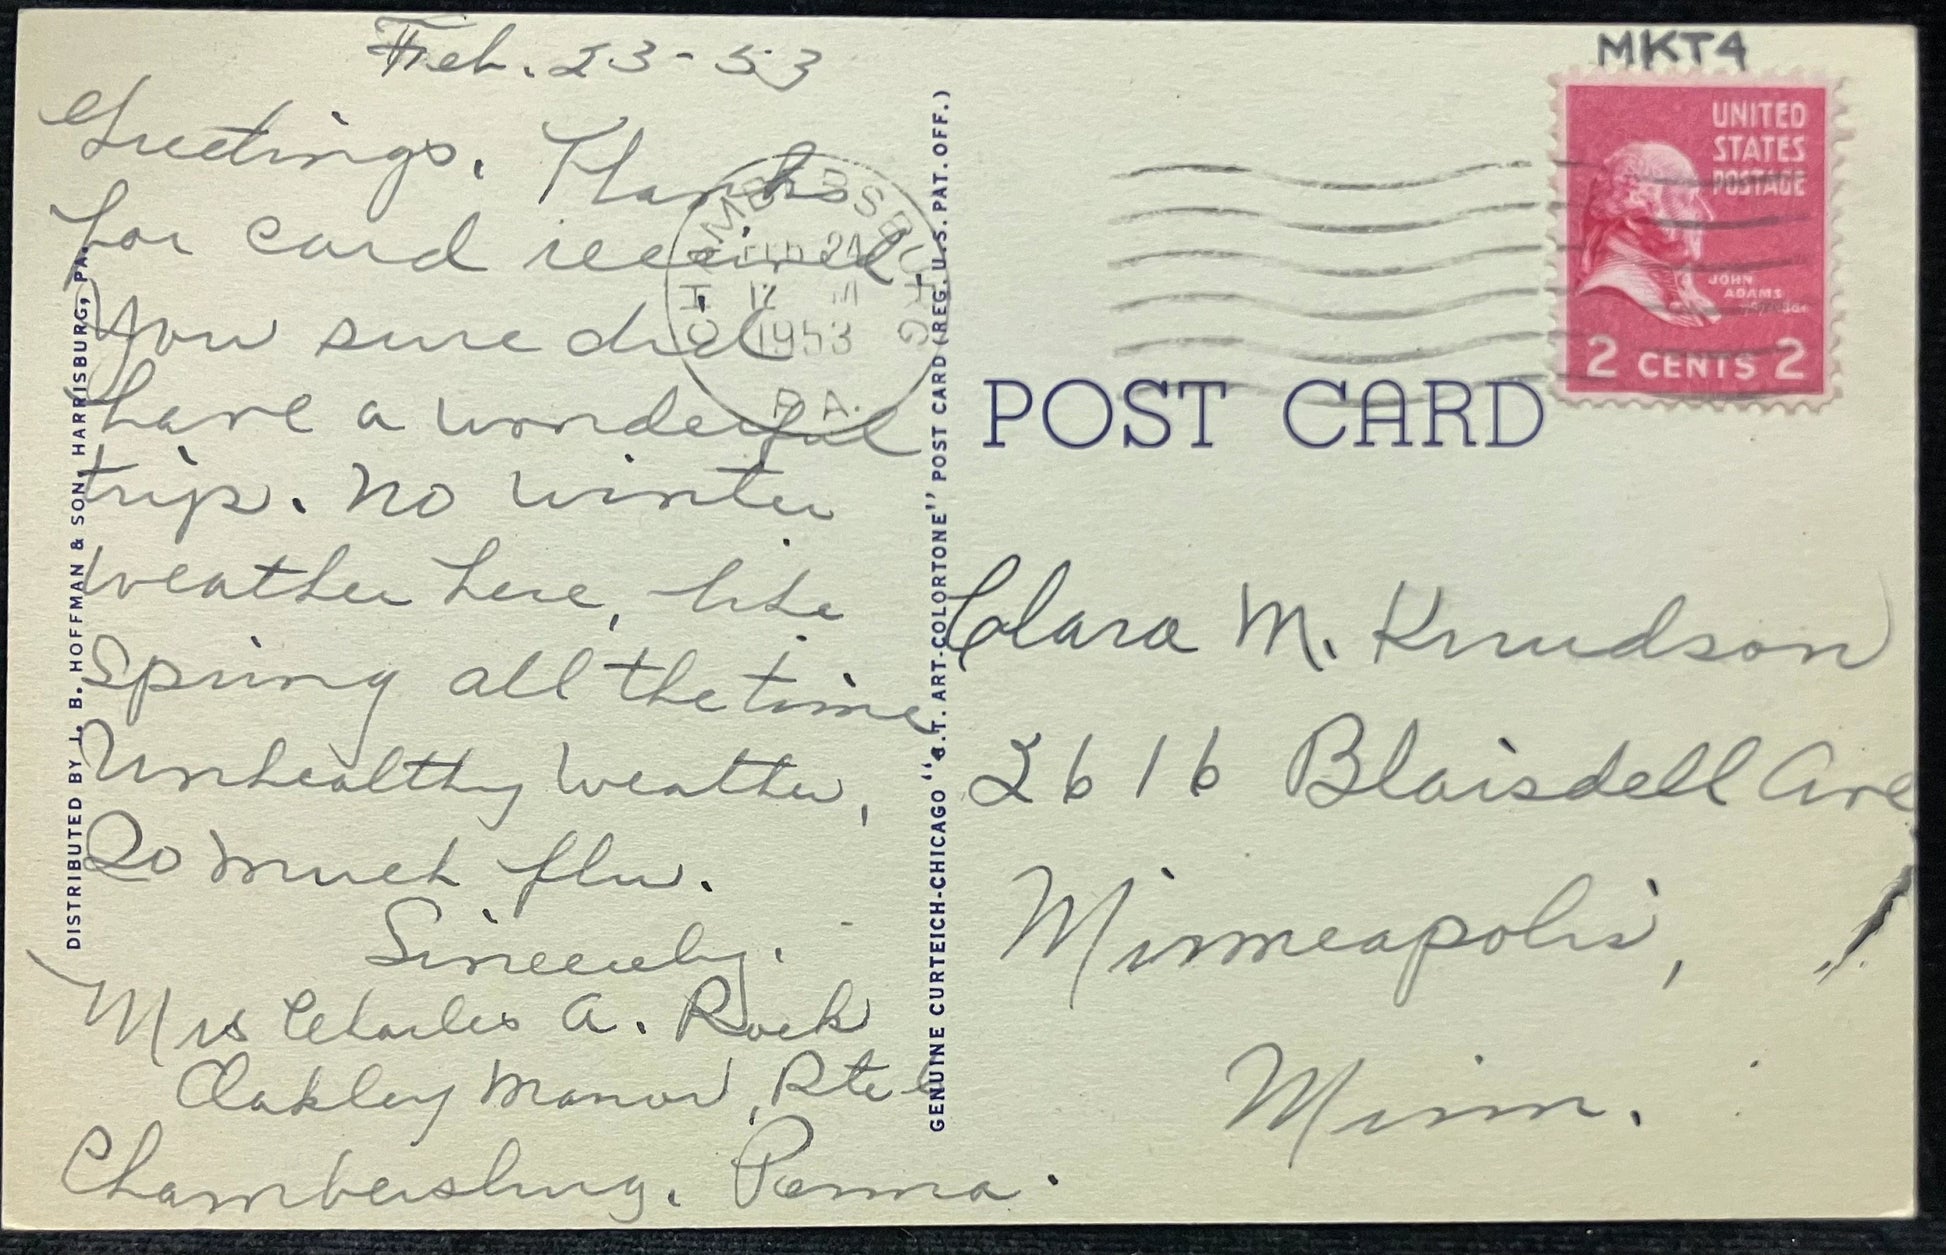 Feb. 23-53
Greetings. Thanks
for card received
You sure did
have a wonderful
trip. No winter
weather here, like
Spring all the time
Unhealthy weather,
So much flu.
Sincerely.
Mrs Charles A. Rock
Oakley Manor, Rte 6
Chambersburg. Penna.
DISTRIBUTED BY J. B. HOFFMAN & SON, HARRISBURG, PA.
CHAMBERSBURG
FEB 24
12 M
1953
PA.
GENUINE CURTEICH-CHICAGO "C.T. ART-COLORTONE" POST CARD (REG. U.S. PAT. OFF.)
MKT4
UNITED
STATES
POSTAGE
JOHN
ADAMS
2 CENTS 2
POST CARD
Clara M. Knudson
2616 Blaisdell Ave
Minneapolis,
Minn.